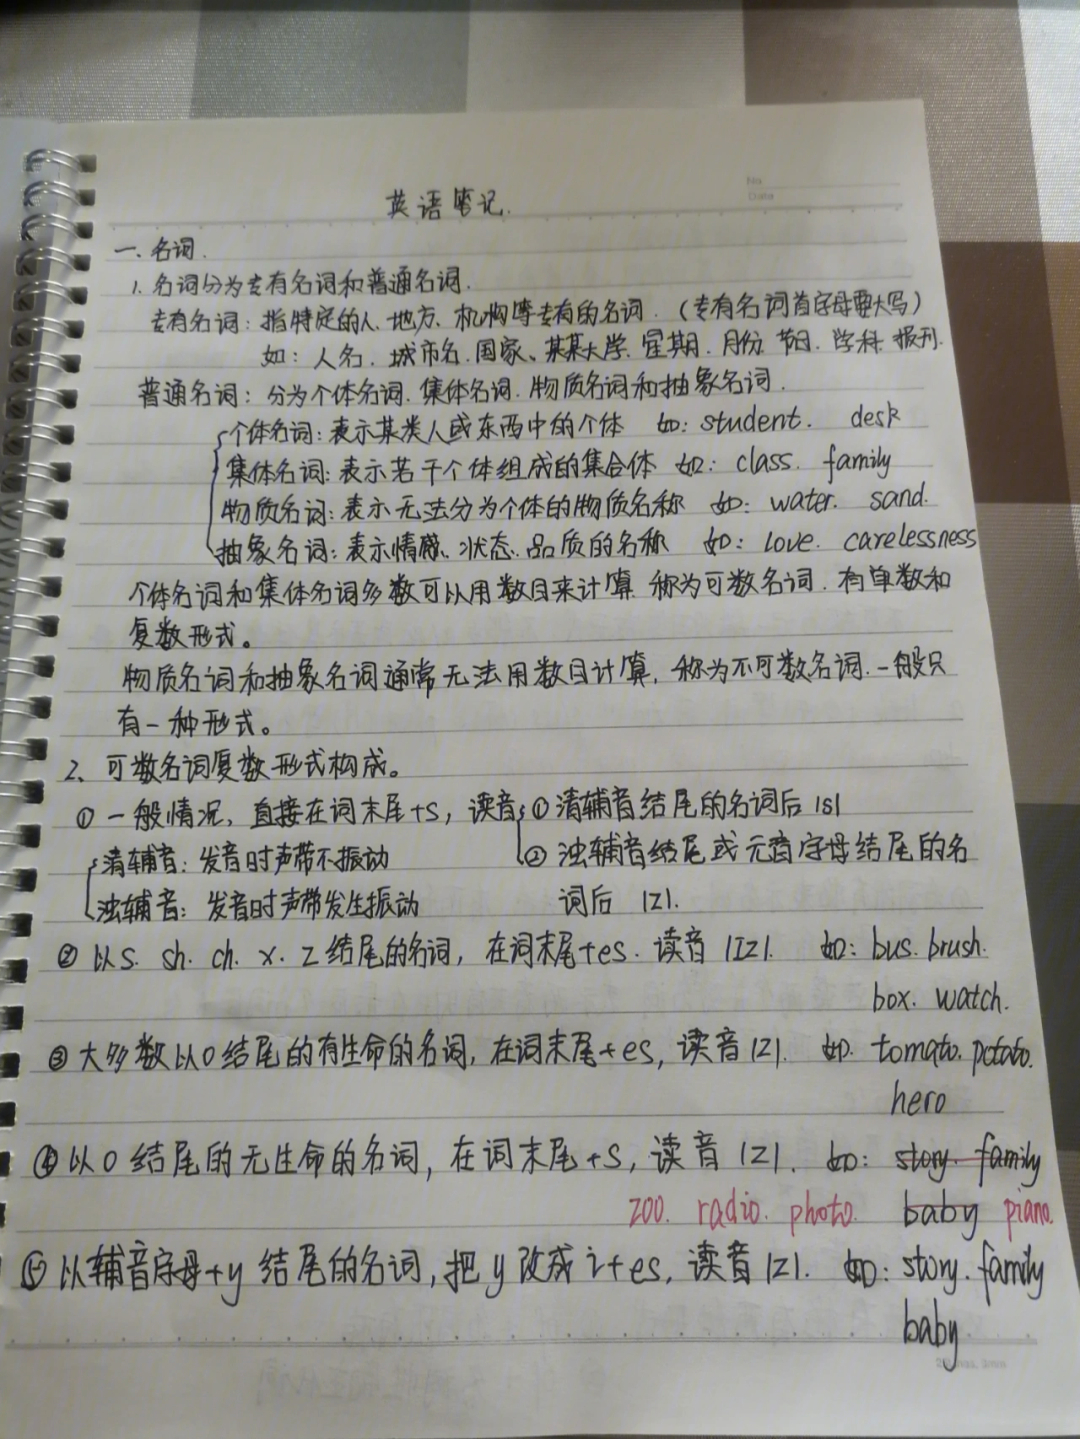 No
Date
英语笔记.
一、名词.
1. 名词分为专有名词和普通名词.
专有名词：指特定的人、地方、机构等专有的名词.（专有名词首字母要大写）
如：人名. 城市名. 国家、某某大学. 星期. 月份. 节日. 学科. 报刊.
普通名词：分为个体名词. 集体名词. 物质名词和抽象名词.
个体名词：表示某类人或东西中的个体 如：student. desk
集体名词：表示若干个体组成的集合体 如：class. family
物质名词：表示无法分为个体的物质名称 如：water. sand.
抽象名词：表示情感、状态、品质的名称 如：love. carelessness
个体名词和集体名词多数可以用数目来计算. 称为可数名词. 有单数和
复数形式。
物质名词和抽象名词通常无法用数目计算, 称为不可数名词. 一般只
有一种形式。
2、可数名词复数形式构成。
① 一般情况, 直接在词末尾+s, 读音 ① 清辅音结尾的名词后 |s|
清辅音：发音时声带不振动 ② 浊辅音结尾或元音字母结尾的名
浊辅音：发音时声带发生振动 词后 |z|.
② 以s. sh. ch. x. z 结尾的名词, 在词末尾+es. 读音 |Iz|. 如：bus. brush.
box. watch.
③ 大多数以o结尾的有生命的名词, 在词末尾+es, 读音 |z|. 如. tomato. potato.
hero
④ 以o结尾的无生命的名词, 在词末尾+s, 读音 |z|. 如：story. family
zoo. radio. photo. baby piano.
⑤ 以辅音字母+y 结尾的名词, 把y改成i+es, 读音 |z|. 如：story. family
baby